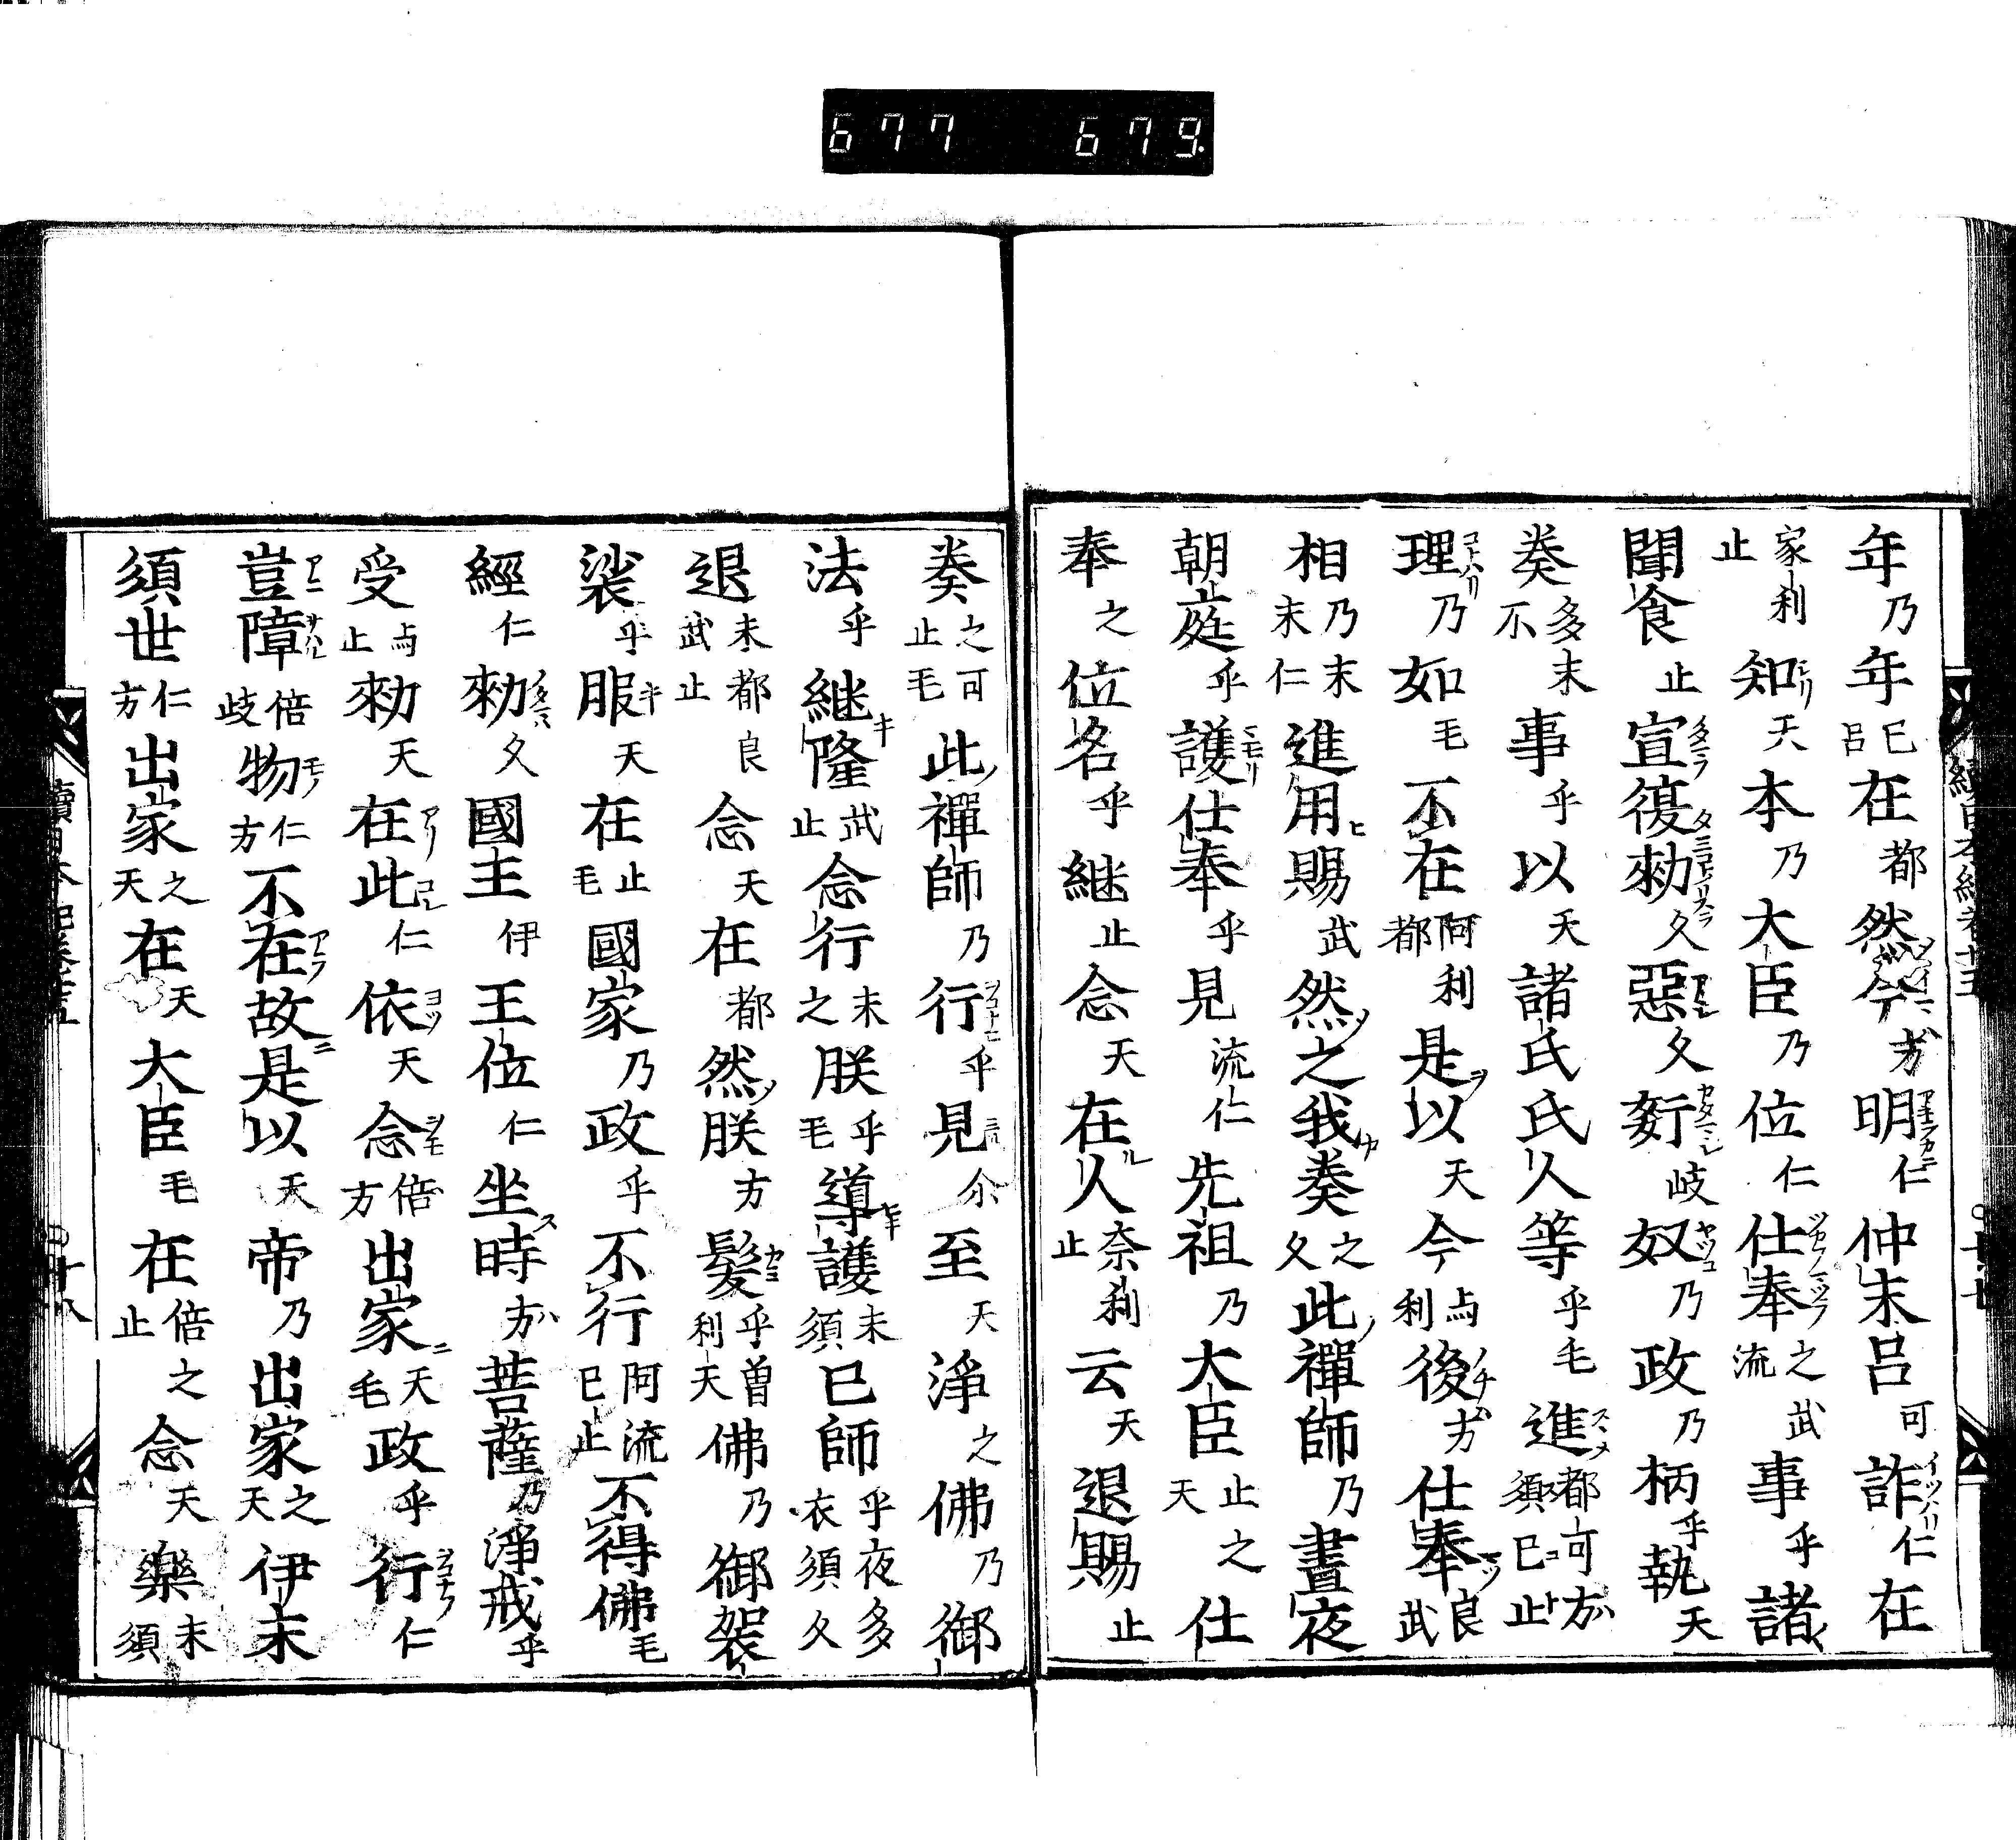 續日本紀卷廿五 十七
年乃年已呂在都然今方明仁仲末呂可詐仁在
家利止知天本乃大臣乃位仁仕奉之武流事乎諸
聞食止宣復勑久惡久姧岐奴乃政乃柄乎執天
奏多末不事乎以天諸氏氏人等乎毛進都可方須已止
理乃如毛不在阿利都是以天今与利後方仕奉良武
相乃末末仁進用賜武然之我奏之久此禪師乃晝夜
朝庭乎護仕奉乎見流仁先祖乃大臣止之天仕
奉之位名乎継止念天在人奈利止云天退賜止
奏之可止毛此禪師乃行乎見尒至天淨之佛乃御
法乎継隆武止念行末之朕乎毛導護末須已師乎夜多衣須久
退末都良武止念天在都然朕方髮乎曽利天佛乃御袈
裟乎服天在止毛國家乃政乎不行阿流已止不得佛毛
經仁勑久國王伊王位仁坐時方菩薩乃淨戒乎
受与止勑天在此仁依天念倍方出家天毛政乎行仁
豈障倍岐物仁方不在故是以天帝乃出家之天伊末
須世仁方出家之天在天大臣毛在倍之止念天樂末須
續日本紀卷廿五 十八
677 679